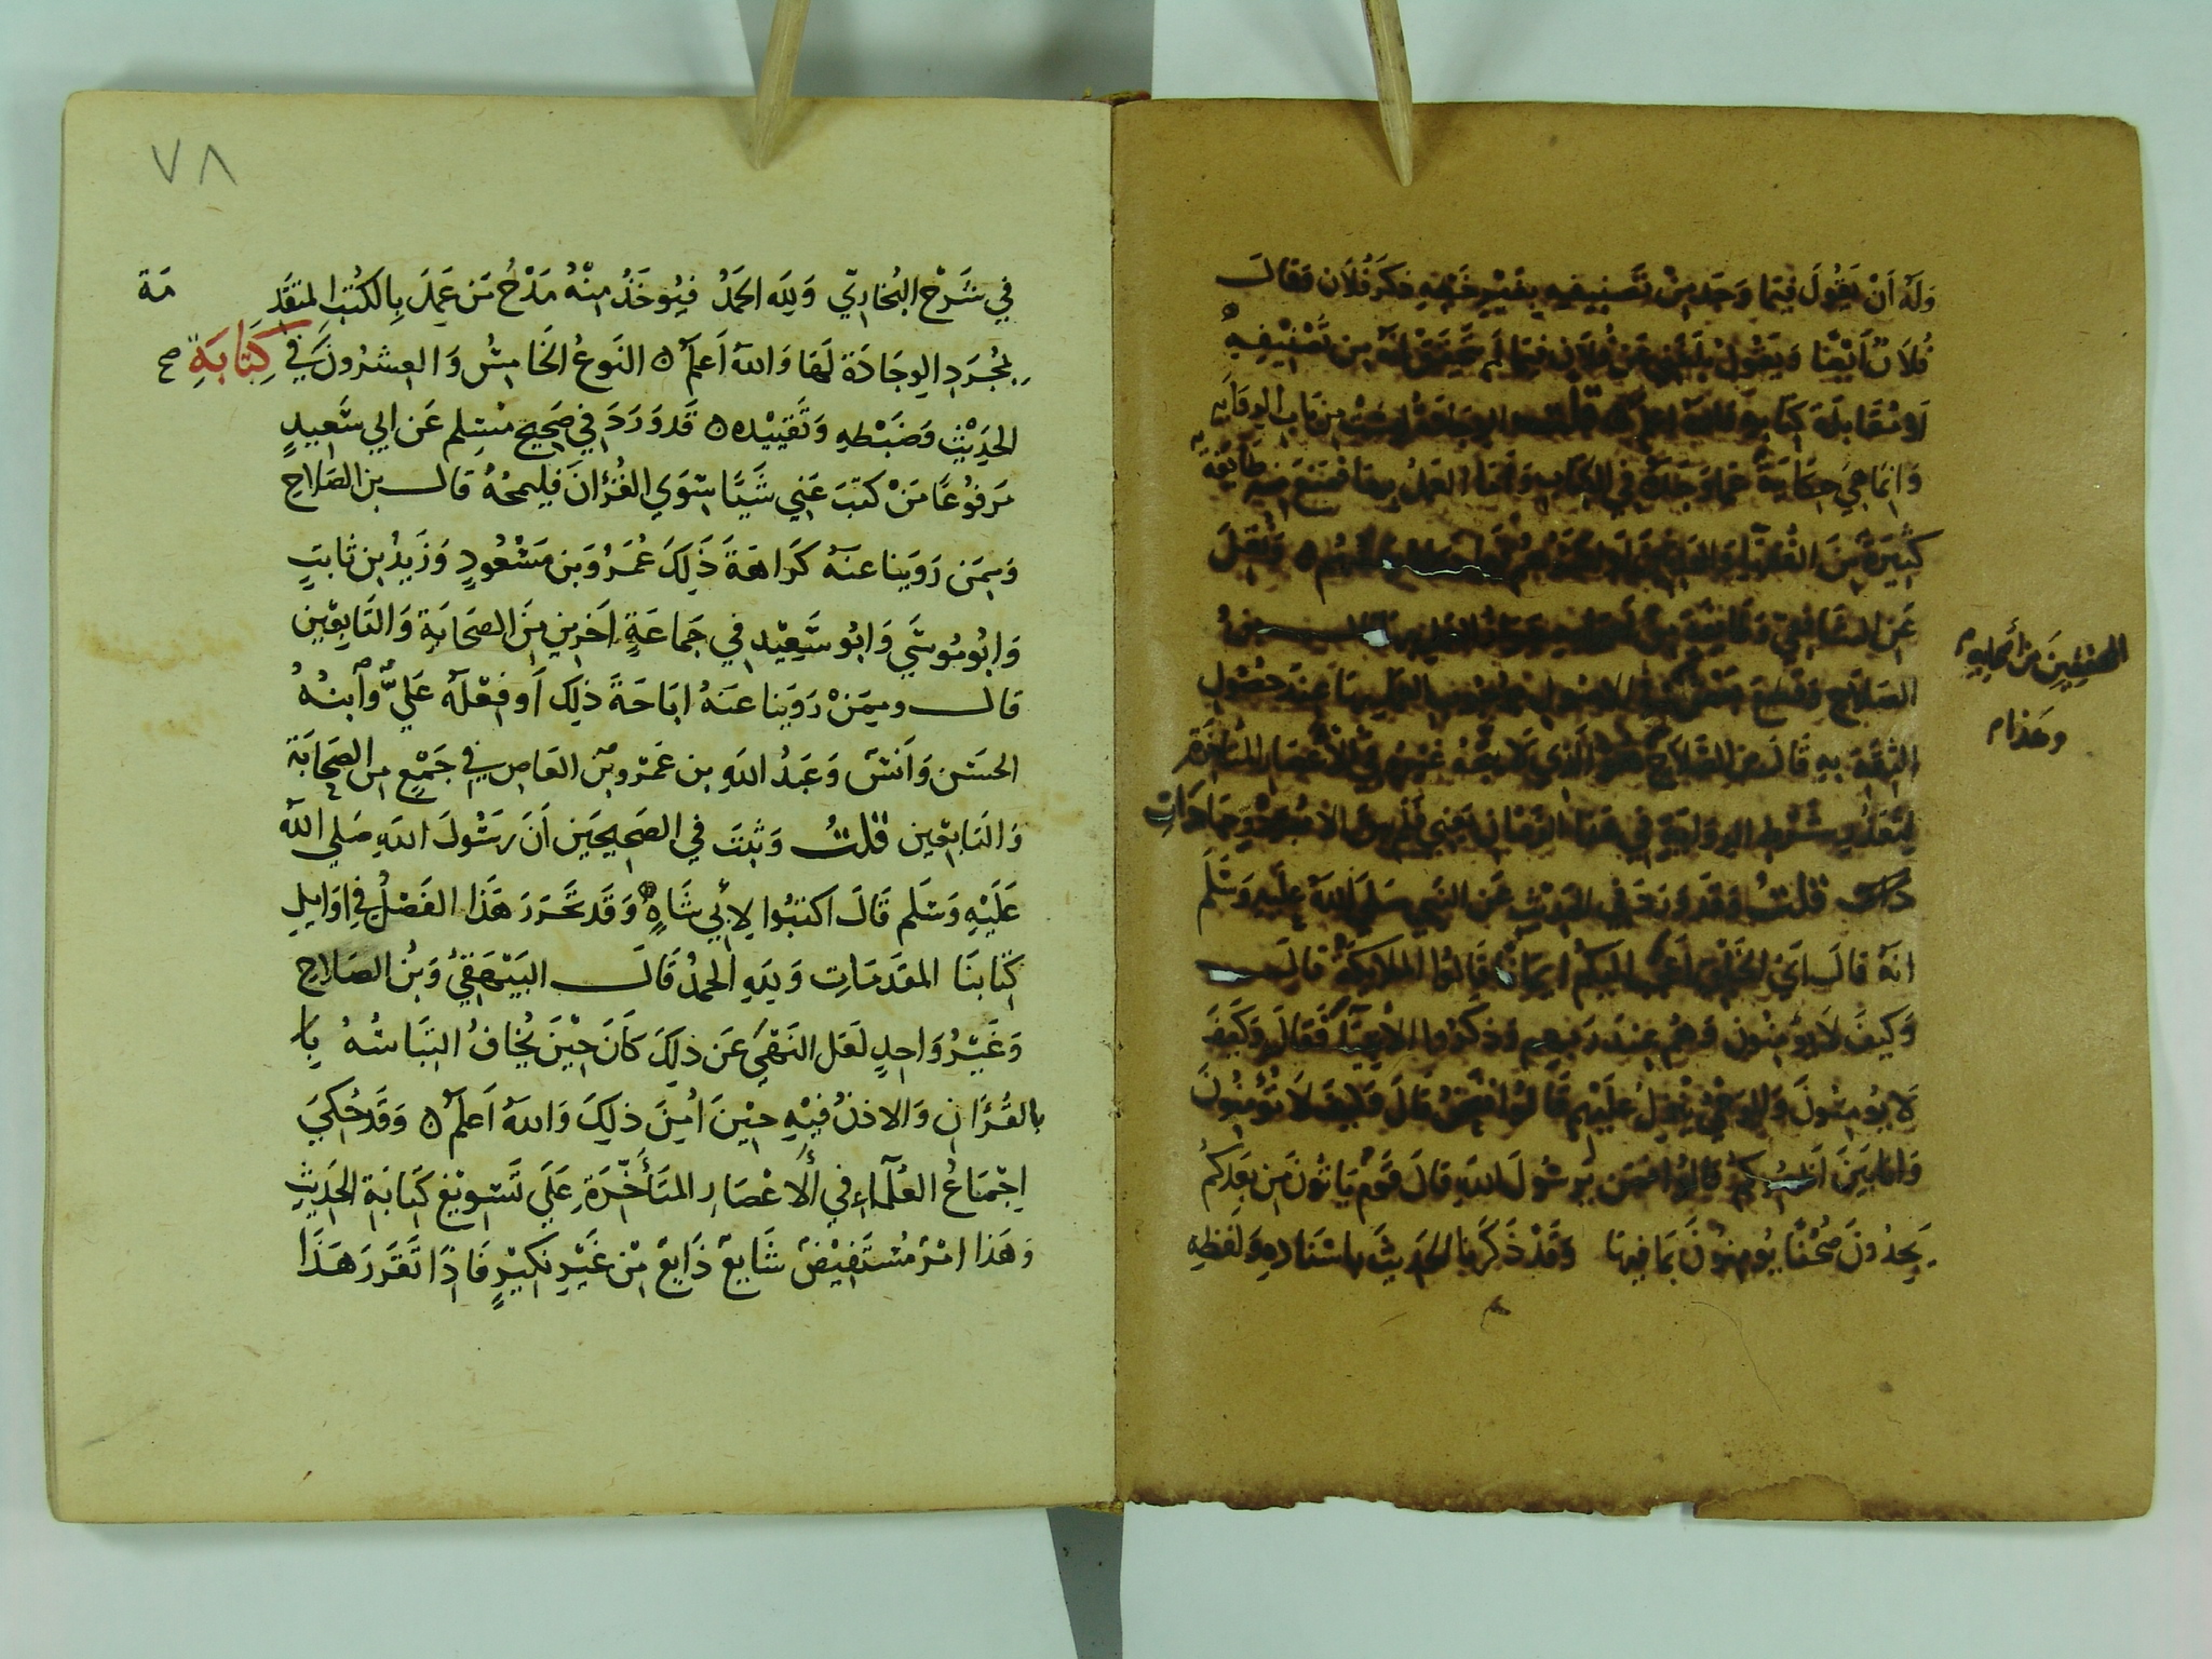 وَلَهُ اَنْ يَقُولَ فيمَا وَجَد مِنْ تَصنِيفِهِ بِغَيْرِ خَطِّهِ ذكَرَ فُلَان وَقَالَ
فُلَانٌ اَيْضًا وَيَقُولُ بَلَغَنِي عَن فُلَانٍ فِيمَا لَم يَتَحَقَّق اَنَّهُ مِن تَصْنِيفِهِ
اَو مُقَابَلَة كِتَابِهِ وَاللهُ اعلم قُلْتُ وَالوِجَادَةُ لَيْسَتْ مِن بَابِ الرِوَايَةِ
وَانمَا هِيَ حِكَايَةٌ عَمَّا وَجَدَهُ فِي الكِتَابِ وَاَمَّا العَمَلُ بِهَا فمَنَعَ مِنه طَايِفَةٌ
كَثِيرَةٌ مِنَ الفُقَهَا وَالمُحَدِّثِينَ اَو اَكْثَرُهُم فيمَا حَكَاهُ بَعْضُهُم ٥ وَنُقِلَ
عَنِ الشَافِعِيِّ وَطَايفَةٍ مِنْ اَصحَابِهِ جَوَازُ العَمَلِ بِهَا قالـــ بنُ
الصَلَاحِ وَقَطَعَ بَعْضُ المحققين من أصحابه في الاصُولِ بوُجُوبِ العَمَلِ بِهَا عِندَ حُصُولِ
الثِقَة بهِ قَالَ بن الصَّلَاحِ وهذا هُوَ الَّذي لَا يتجِهُ غَيْرُهُ فِي الاَعْصَارِ المُتَأَخِّرَةِ
لِتَعَذُّرِ شُرُوطِ الرِوَايَةِ فِي هَذَا الزَمَانِ يَعْنِي فلَم يبقَ الا مُجَرَّدُ وجَادَاتٍ
قُلْتُ وَقَد وَرَدَ في الحَدِيثِ عَنِ النَبي صَلَى اللهُ عَلَيهِ وَسَلَّم
انهُ قالَ ايُّ الخَلْقِ اَعْجَبُ اليكُم ايمَانًا قَالُوا المَلَايكَةُ قالـــ
وَكيفَ لَا يُؤمِنُونَ وَهُم عِندَ رَبِهِم وَذكَرُوا الاَنبِيَآءَ فَقَالَ وَكَيفَ
لَا يُؤمِنُونَ وَالوَحْيُ يَنْزِلُ عَلَيْهِم قَالُوا فَنَحْنُ قَالَ وَكَيفَ لَا تُؤْمِنُونَ
وَانَا بَينَ اَظهُرِكُم قَالُوا فمَن يَرَسُولَ اللهِ قالَ قَوْم يَاتُونَ مِن بَعدِكُم
يَجِدُونَ صُحُفًا يُؤمِنُونَ بمَا فيهَا وَقَدْ ذَكَرْنا الحَدِيثَ بِاسْنَادِهِ وَلَفظِهِ
المحققين من أصحابه
وهذا م
٧٨
في شَرْحِ البُخَارِيّ وَلله الحَمْدُ فيُوخَذُ مِنْهُ مَدْحُ مَن عَمِلَ بِالكُتُبِ المتَقَدِ مَة
بمُجَرَدِ الوِجَادَة لَهَا وَاللهُ اَعلَمُ ٥ النَوعُ الخَامِسُ وَ العِشرُونَ في كِتَابَةِ
الحَدِيْثِ وَضَبْطِهِ وَتَقْييْدِه ٥ قَد وَرَدَ فِي صَحِيح مُسْلِم عَن ابي سَعِيدٍ
مَرفوُعًا مَنْ كَتَبَ عَنِي شَيئًا سِوَي القُرْانَ فَليمحُهُ قالـــ بن الصَلاحِ
وَمِمَن رَوَينا عنهُ كَرَاهَةَ ذَلِكَ عُمَرُ وَبن مَسْعُودٍ وَزَيدُ بن ثابتٍ
وَابُو مُوسَي وَابُو سَعِيْدٍ في جَماعَةٍ اخَرِين مِنَ الصَحَابَةِ وَالتَابِعِين
قالـــ ومِمَنْ رَوَينا عنَهُ ابَاحَةَ ذَلِك اَو فِعْلَهُ عَليٌّ وابنُهُ
الحسَن وَاَنسٌ وَعَبدُ اللهِ بن عَمْرو بن العَاصِ في جَمْعٍ من الصَحَابَة
وَالتَابعِين قُلتُ وَثَبتَ في الصَحِيحَين اَنَ رَسُولَ اللهِ صَلي اللهُ
عَلَيْهِ وَسَلم قَالَ اكتبُوا لِأَبي شَاهٍ وَقَد تَحَرَرَ هَذا الفَصْلُ في اوَايلِ
كِتَابنَا المقدَمَاتِ وَللهِ الحمدُ قَالَـــ البَيْهَقِيُ وَبنُ الصَلاحِ
وَغَيْرُ وَاحِدٍ لَعَل النَهْيَ عَن ذلِكَ كَانَ حِيْنَ يُخَافُ التِبَاسُهُ با
بالقُرْاَنِ وَالاذنُ فيْهِ حِيْنَ اُمِنَ ذلِكَ وَاللهُ اَعلَمُ ٥ وَقَد حُكيَ
اِجْمَاعُ العُلَمآءِ في الاَعْصَارِ المتَأَخِّرَةِ عَلَي تَسْويْغِ كَتَابَة الحَدِيثِ
وَهَذا امْرٌ مُسْتَفِيْضٌ شَايعٌ ذَايعٌ مِنْ غَيْرِ نكِيْرٍ فَاِذَا تَقَرَرَ هَذَا